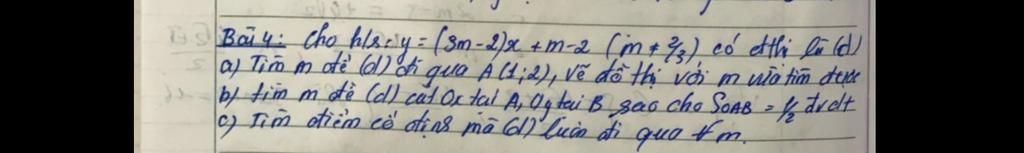 Bài 4: Cho h/s: y = (3m-2)x + m-2 (m ≠ 2/3) có đthị là (d)
a) Tìm m để (d) đi qua A(1;2), vẽ đồ thị với m vừa tìm được
b) tìm m để (d) cắt Ox tại A, Oy tại B sao cho SOAB = 1/2 đvdt
c) Tìm điểm cố định mà (d) luôn đi qua ∀m.